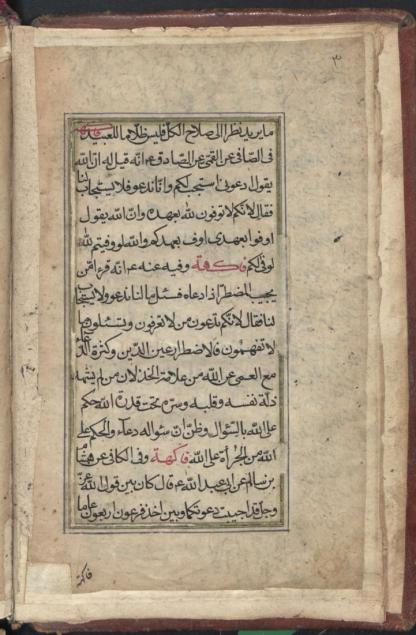 ٣
ما يريد نظرا الى صلاح الكل فليس ظلاما للعبيد فاكهة
فى الصافى عن القمى عن الصادق ع انه قيل له ان الله
يقول ادعونى استجب لكم وانا ندعو فلا يستجاب لنا
فقال لانكم لا توفون لله بعهده وان الله يقول
اوفوا بعهدى اوف بعهدكم والله لو وفيتم لله
لوفى لكم فاكهة وفيه عنه ع انه قرء امن
يجيب المضطر اذا دعاه فسئل ما لنا ندعو ولا يستجاب
لنا فقال لانكم تدعون من لا تعرفون وتسئلون ما
لا تفهمون فالاضطرار عين الدين وكثرة الدعاء
مع العمى عن الله من علامة الخذلان من لم يشهد
ذلة نفسه وقلبه وسره تحت قدرة الله حكم
على الله بالسئوال وظن ان سئواله دعاء والحكم على
الله من الجرأة على الله فاكهة وفى الكافى عن هشام
بن سالم عن ابى عبد الله ع قال كان بين قول الله عز
وجل قد اجيبت دعوتكما وبين اخذ فرعون اربعون عاما
فاكهة